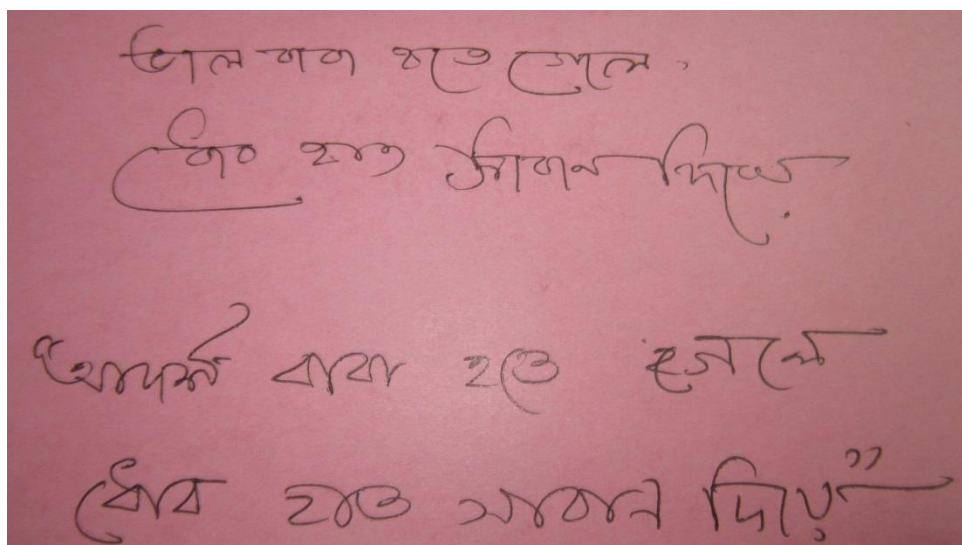 ভাল বাবা হতে গেলে
ধোব হাত সাবান দিয়ে
"আদর্শ বাবা হতে হলে
ধোব হাত সাবান দিয়ে"